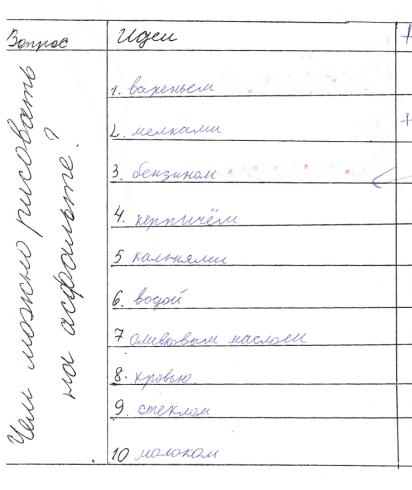 Вопрос
Идеи
+
Чем можно рисовать
на асфальте?
1. вареньем
2. мелками
+
3. бензином
4. керпичём
5 камнями
6. водой
7 оливковым маслом
8. кровью
9. стеклом
10 молоком